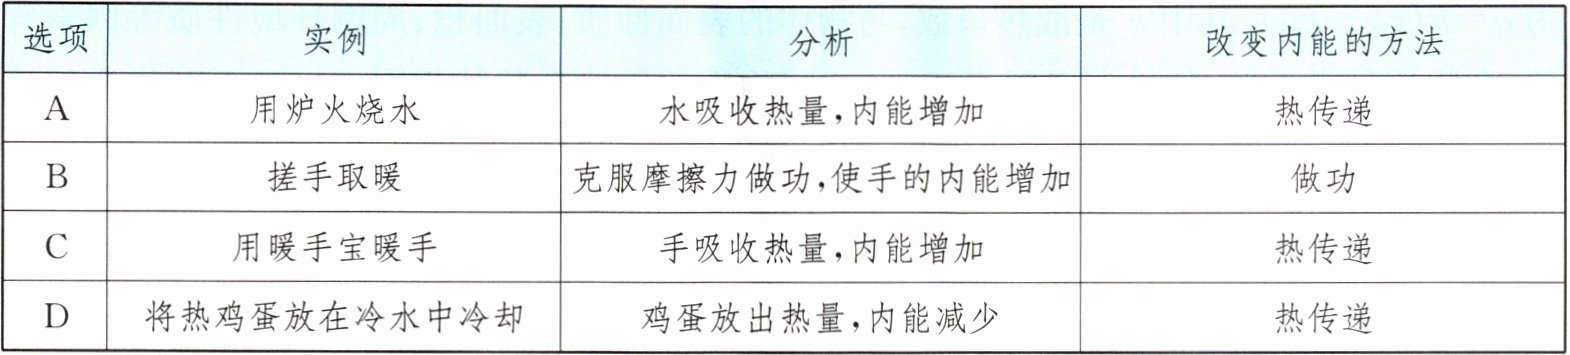 选项 实例 分析 改变内能的方法
A 用炉火烧水 水吸收热量,内能增加 热传递
B 搓手取暖 克服摩擦力做功,使手的内能增加 做功
C 用暖手宝暖手 手吸收热量,内能增加 热传递
D 将热鸡蛋放在冷水中冷却 鸡蛋放出热量,内能减少 热传递